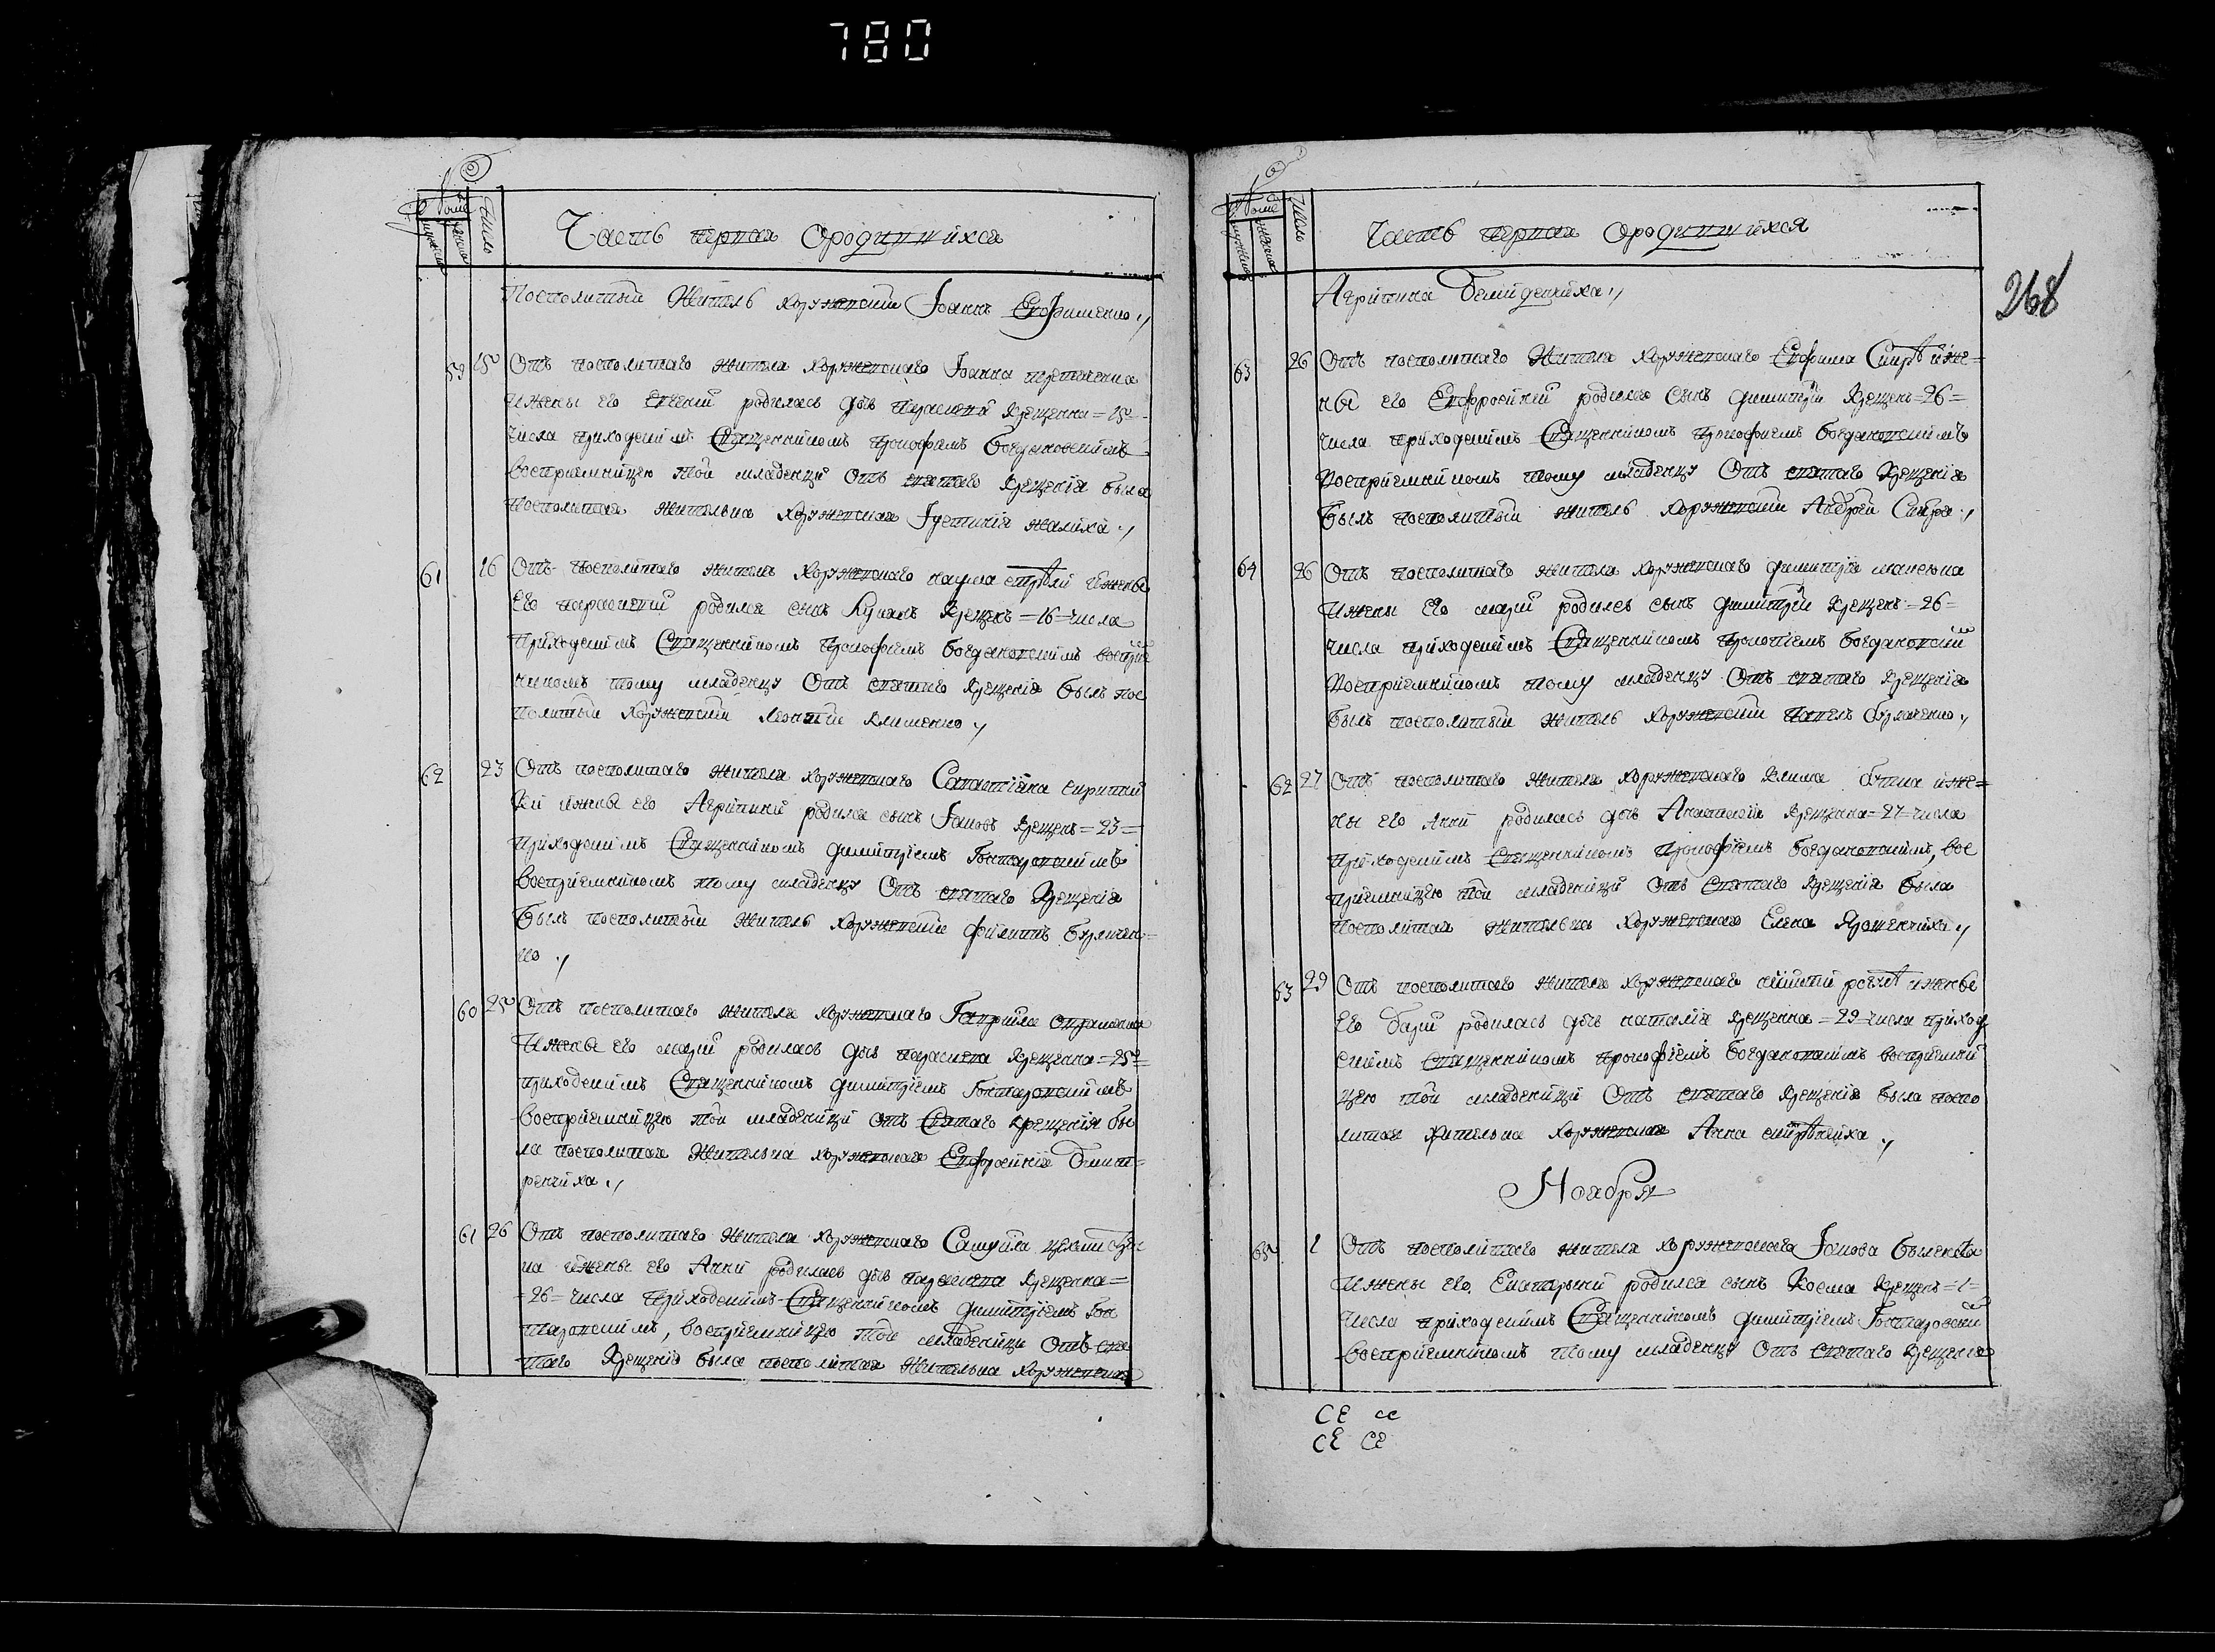 780
Число
Часть первая ородившихся
Посполитый Житель хоружевский Іоаннъ Евфименко
59 25 Отъ посполитаго жителя хоружевскаго Іоанна
ижены его родилась дчь Параскевія крещенна = 25 =
числа приходскимъ Священникомъ Прокофіемъ Богдановскимъ
восприемницею той младенци Отъ святаго крещенія была
посполитая жителька хоружевская Іустинія
61 16 Отъ посполитаго жителя хоружевскаго наума ижены
Его параскевіи родился сынъ крещенъ = 16 = числа
Приходскимъ Священникомъ Прокофіемъ Богдановскимъ воспрїем
никомъ тому младенцу Отъ святаго крещенія былъ пос
политый хоружевский Леонтій клименко
62 23 Отъ посполитаго жителя хоружевскаго Савастіяна
ижены его Агрипини родился сынъ Іаковъ крещенъ = 23 =
приходскимъ Священникомъ димитріемъ Гонтаровскимъ
восприемникомъ тому младенцу Отъ святаго крещенія
былъ посполитый житель хоружевский филиппъ Бурлачен=
ко
60 25 Отъ посполитаго жителя хоружевскаго Гавриила
Ижены его маріи родилась дчь параскева крещенна = 25 =
приходскимъ Священникомъ димитріемъ Гонтаровскимъ
восприемницею той младеници отъ Святаго крещенія бы
ла посполитая Жителька хоружевская Евфросинія дмит=
ренчиха
61 26 Отъ посполитаго жителя хоружевскаго Самуила
ка ижены его Анни родилась дчь параскева крещенна =
= 26 = числа приходскимъ Священникомъ димитріемъ Гон
таровскимъ, восприемницею той младеници отъ свя
таго крещенія была посполитая жителька хоружевская
Число
Часть первая ородившихся
268
Агрипина Демиденчиха
63 26 Отъ посполитаго Жителя хоружевскаго Евфима Сыръ ѝже=
ны его Евфросиніи родился сынъ димитрій крещенъ = 26 =
числа приходскимъ Священникомъ Прокофіемъ Богдановскимъ
восприемникомъ тому младенцу Отъ святаго крещенія
былъ посполитый житель хоружевский Андрей
64 26 Отъ посполитаго жителя хоружевскаго димитрія
Ижены Его маріи родился сынъ димитрій крещенъ = 26 =
числа приходскимъ Священникомъ Прокопіемъ Богдановскимъ
восприемникомъ тому младенцу Отъ святаго крещенія
былъ посполитый житель хоружевский Павелъ бурлаченко
62 27 Отъ посполитаго жителя хоружевскаго Клима ѝже=
ны его Анни родилась дчь Анастасія крещенна = 27 = числа
приходскимъ священникомъ Прокофіемъ Богдановскимъ, вос
приемницею той младеници Отъ Святаго крещенія была
посполитая жителька хоружевская Елена Ярошенчиха
63 29 Отъ посполитаго жителя хоружевскаго ижены
Его родилась дчь наталія крещенна = 29 = числа приход
скимъ священникомъ прокофіемъ Богдановскимъ восприемни
цею той младеници Отъ святаго крещенія была поспо
литая жителька хоружевская Анна
Ноября
65 1 Отъ посполитаго жителя хоружевскаго Іакова
Ижены его Екатерыни родился сынъ Косма крещенъ = 1 =
числа приходскимъ Священникомъ димитріемъ Гонтаровски
восприемникомъ тому младенцу Отъ святаго крещенія
СЕ се
СЕ СЕ